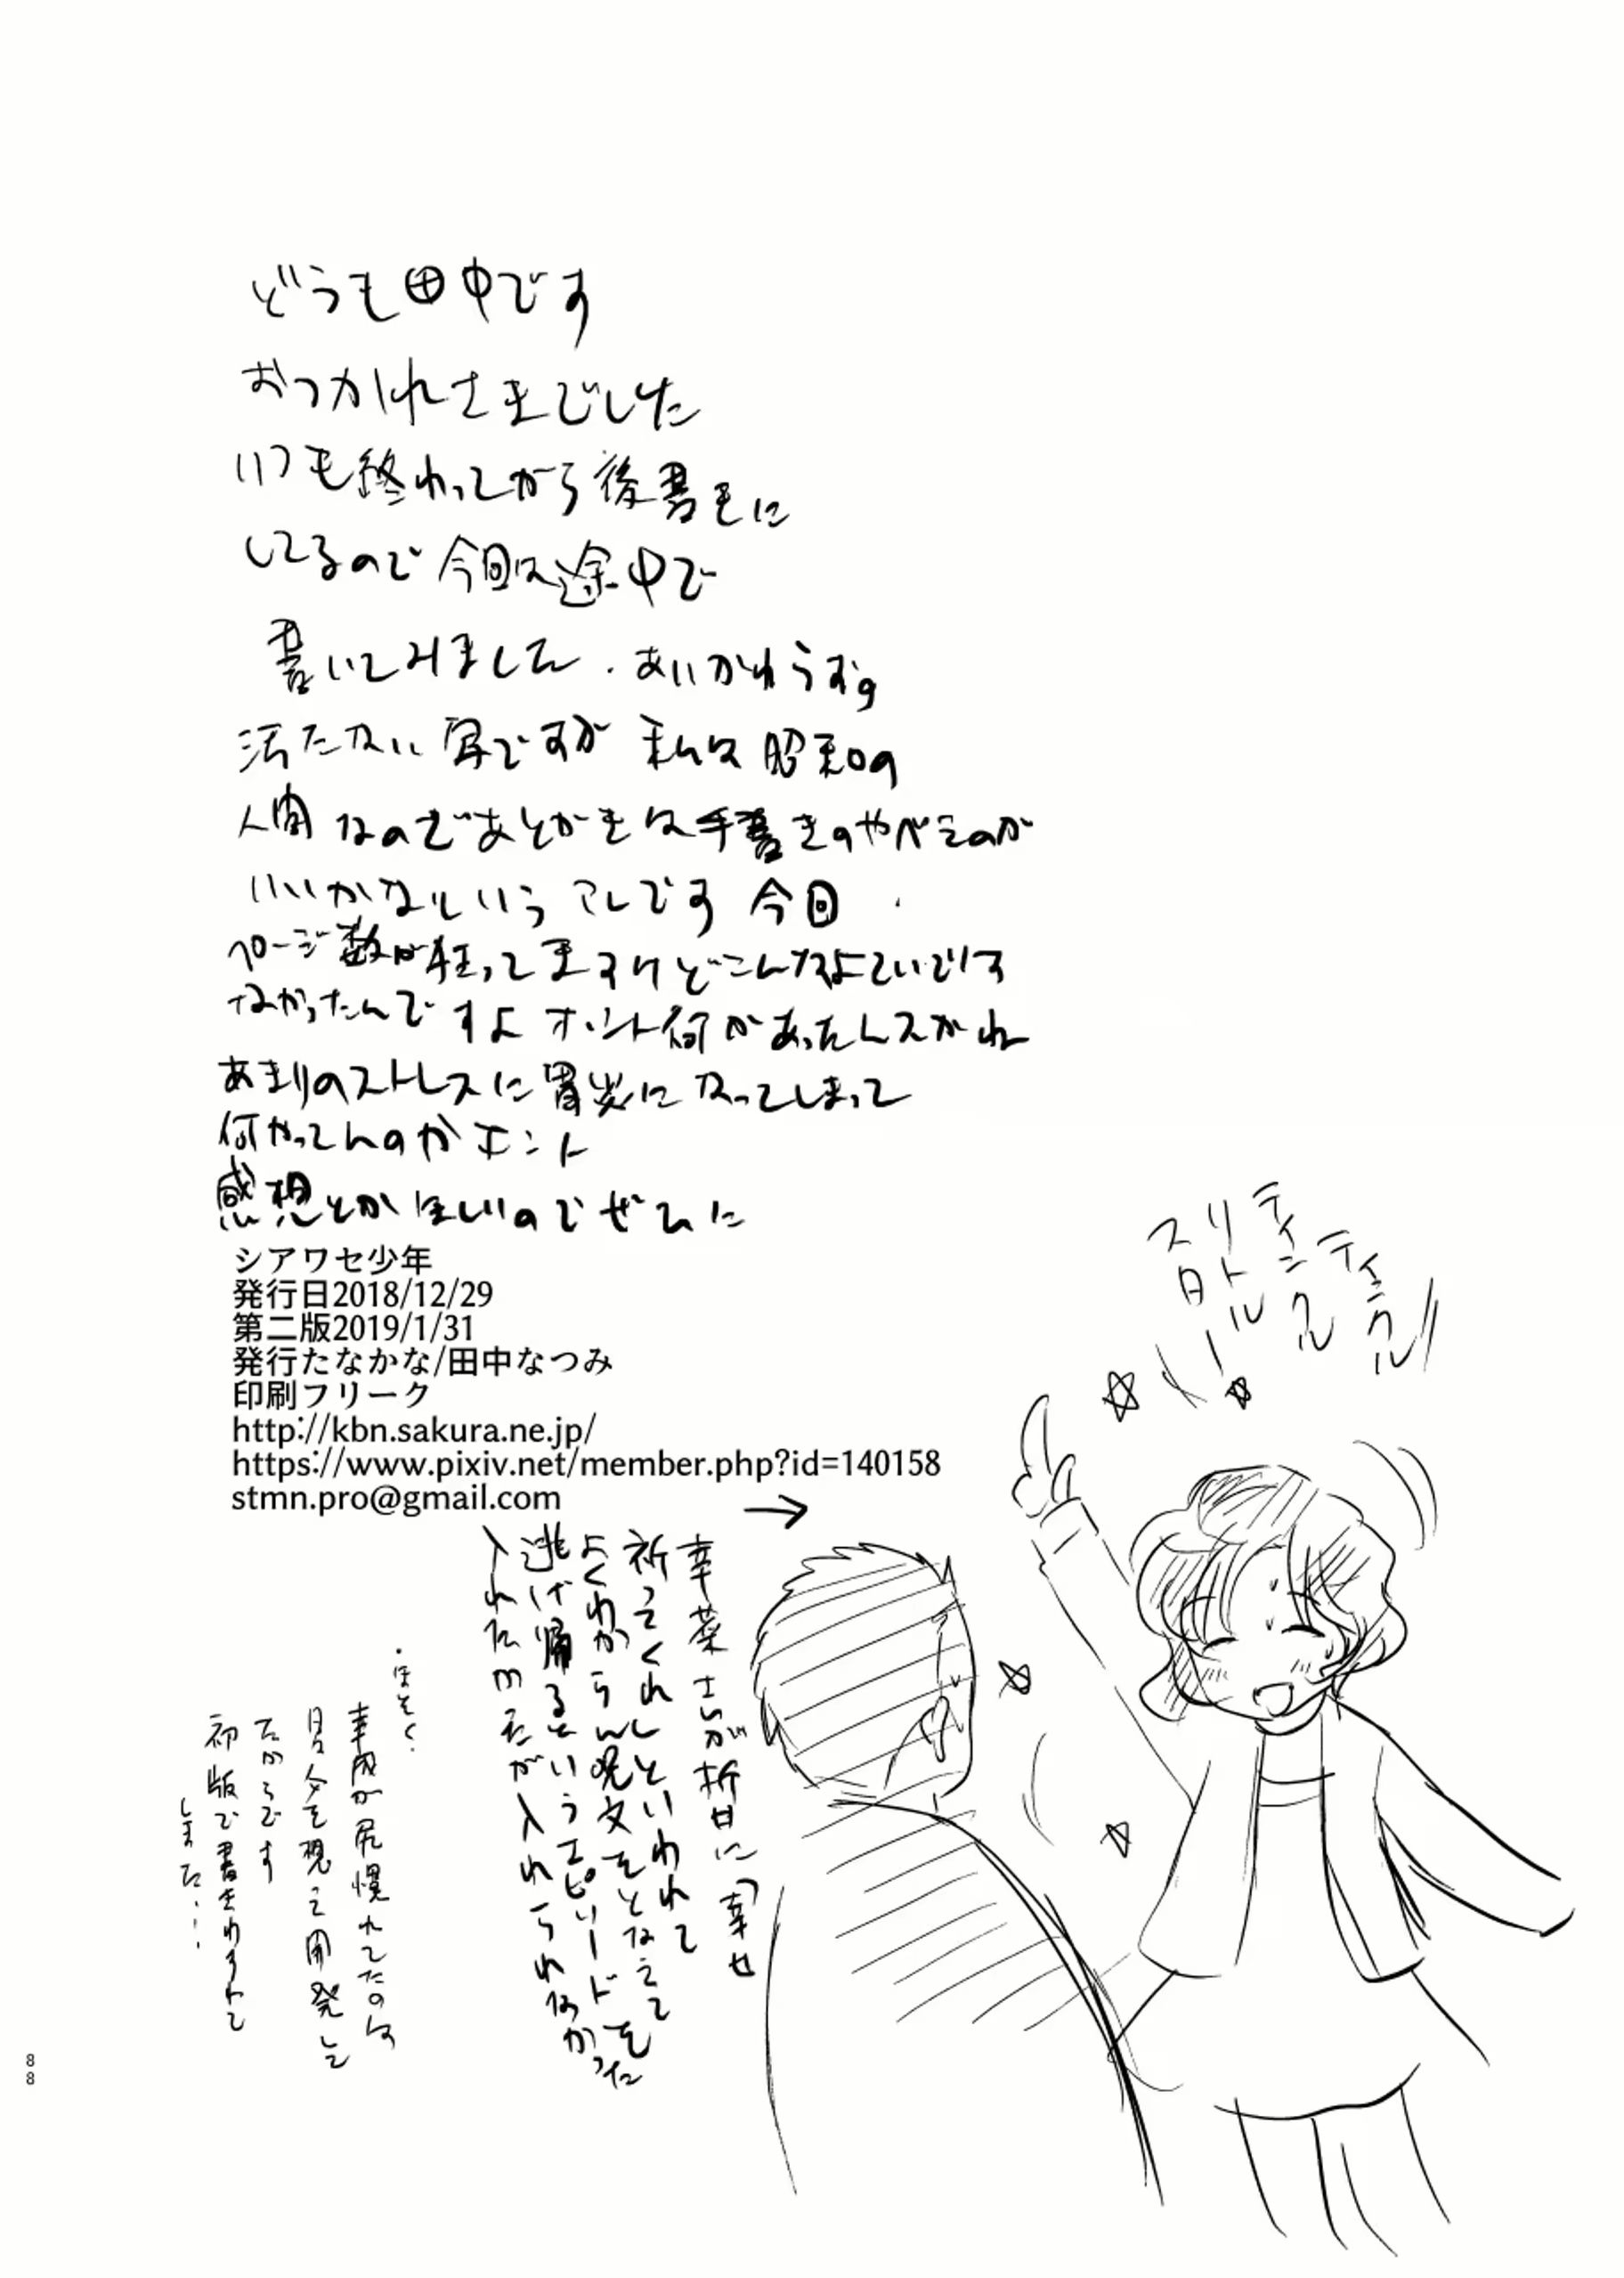 どうも田中です
おつかれさまでした
いつも終わってから後書きに
してるので今回は途中で
書いてみました。あいかわらずの
汚たない字ですが 私は昭和の
人間なのであとがきは手書きのやべえのが
いいかなというアレです 今回
ページ数が狂ってますけどこんなよていでは
なかったんですよ ホント何があったんスかね
あまりのストレスに胃炎になってしまって
何やってんのかホント
感想とかほしいのでぜひに
シアワセ少年
発行日2018/12/29
第二版2019/1/31
発行たなかな/田中なつみ
印刷フリーク
http://kbn.sakura.ne.jp/
https://www.pixiv.net/member.php?id=140158
stmn.pro@gmail.com
→
ティンクルティンクル
リトル
スター
幸菜さんが折井に「幸せ
祈ってくれ」といわれて
よくわからん呪文をとなえて
逃げ帰るというエピソードを
入れたかったが入れられなかった
・ほそく・
幸成が尻慣れてたのは
兄夕を想って開発して
たからです
初版で書きわすれて
ました…
88